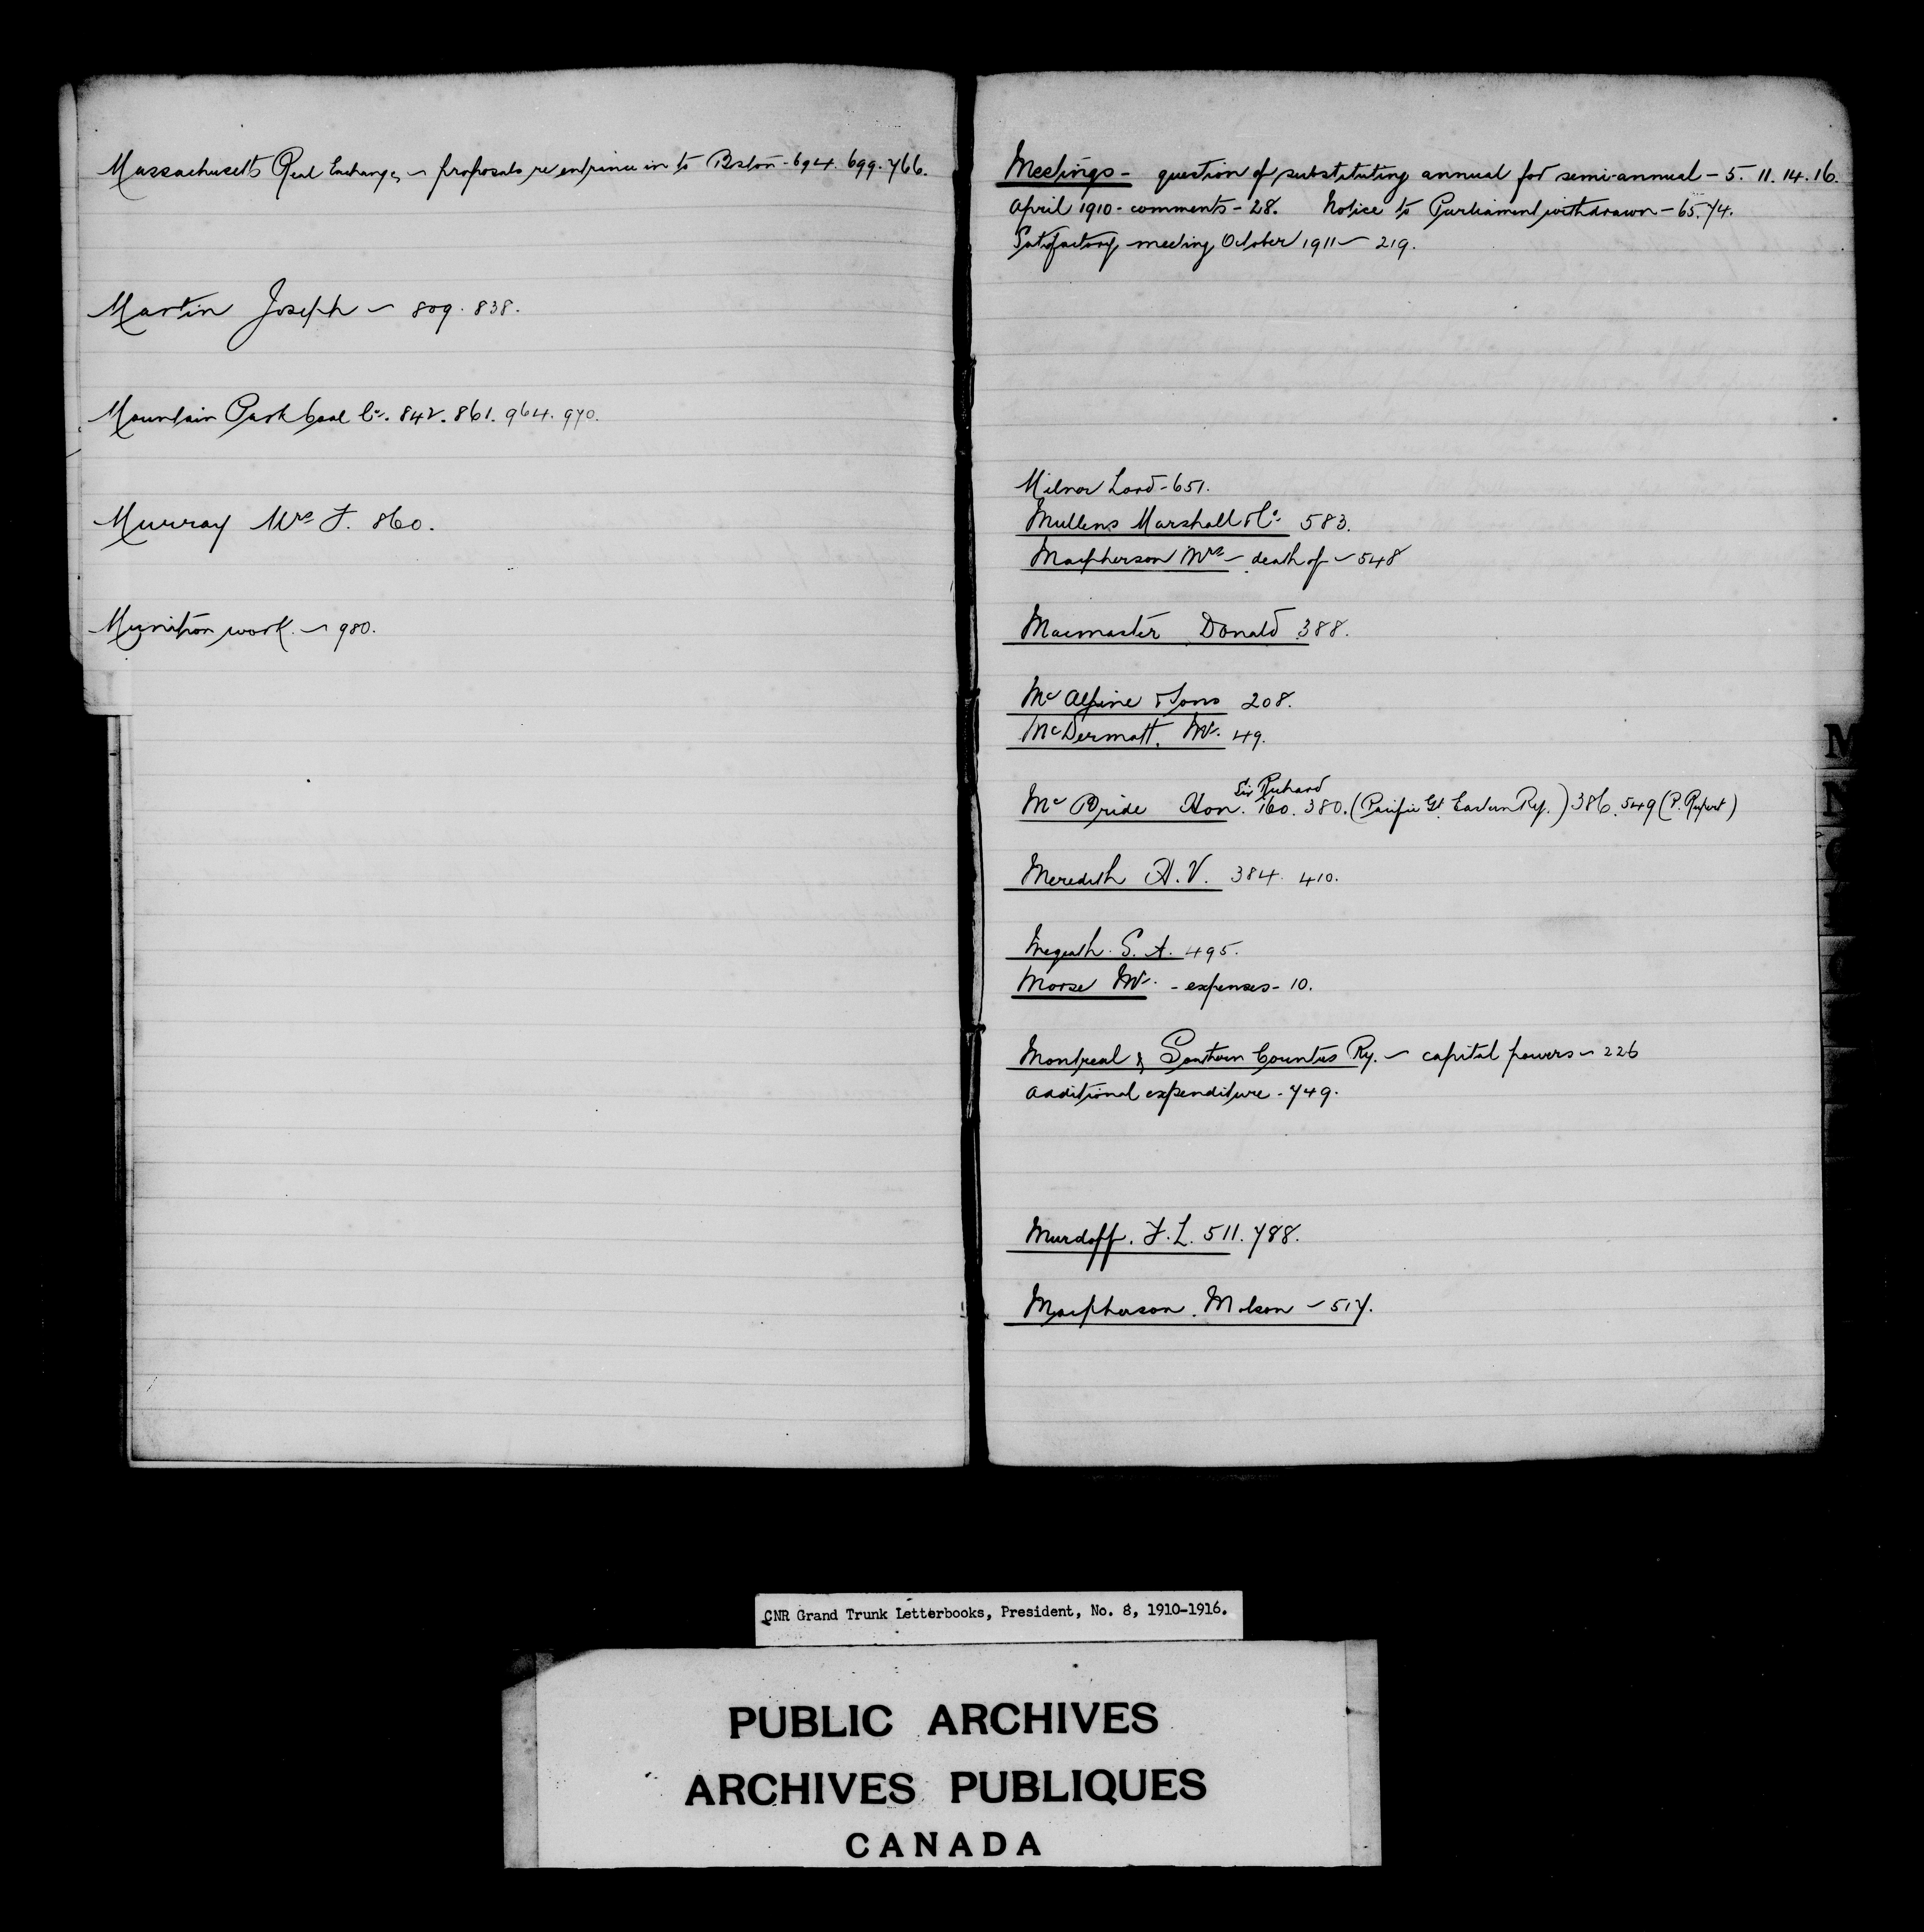 Massachusetts Real Exchange, - proposals re entrance in to Boston - 694. 699. 766.
Martin Joseph - 809. 838.
Mountain Park Coal Co. 842. 861. 964. 970.
Murray Mrs F. 860.
Munition work - 980.
Meetings - question of substituting annual for semi-annual - 5. 11. 14. 16.
April 1910 - comments - 28. Notice to Parliament withdrawn - 65. 74.
Satisfactory meeting October 1911 - 219.
Milner Lord - 651.
Mullens Marshall & Co. 583.
Macpherson Mrs - death of - 548
Macmaster Donald 388.
McAlpine & Sons 208.
McDermott, Mr. 49.
McBride Hon. Sir Richard 160. 380. (Pacific Gt. Eastern Ry.) 386. 549 (P. Rupert)
Meredith H.V. 384. 410.
Megeath S. A. 495.
Morse Mr. - expenses - 10.
Montreal & Southern Counties Ry. - capital powers - 226
additional expenditure - 749.
Murdoff. F. L. 511. 788.
Macpherson. Molson - 517.
M
N
CNR Grand Trunk Letterbooks, President, No. 8, 1910-1916.
PUBLIC ARCHIVES
ARCHIVES PUBLIQUES
CANADA